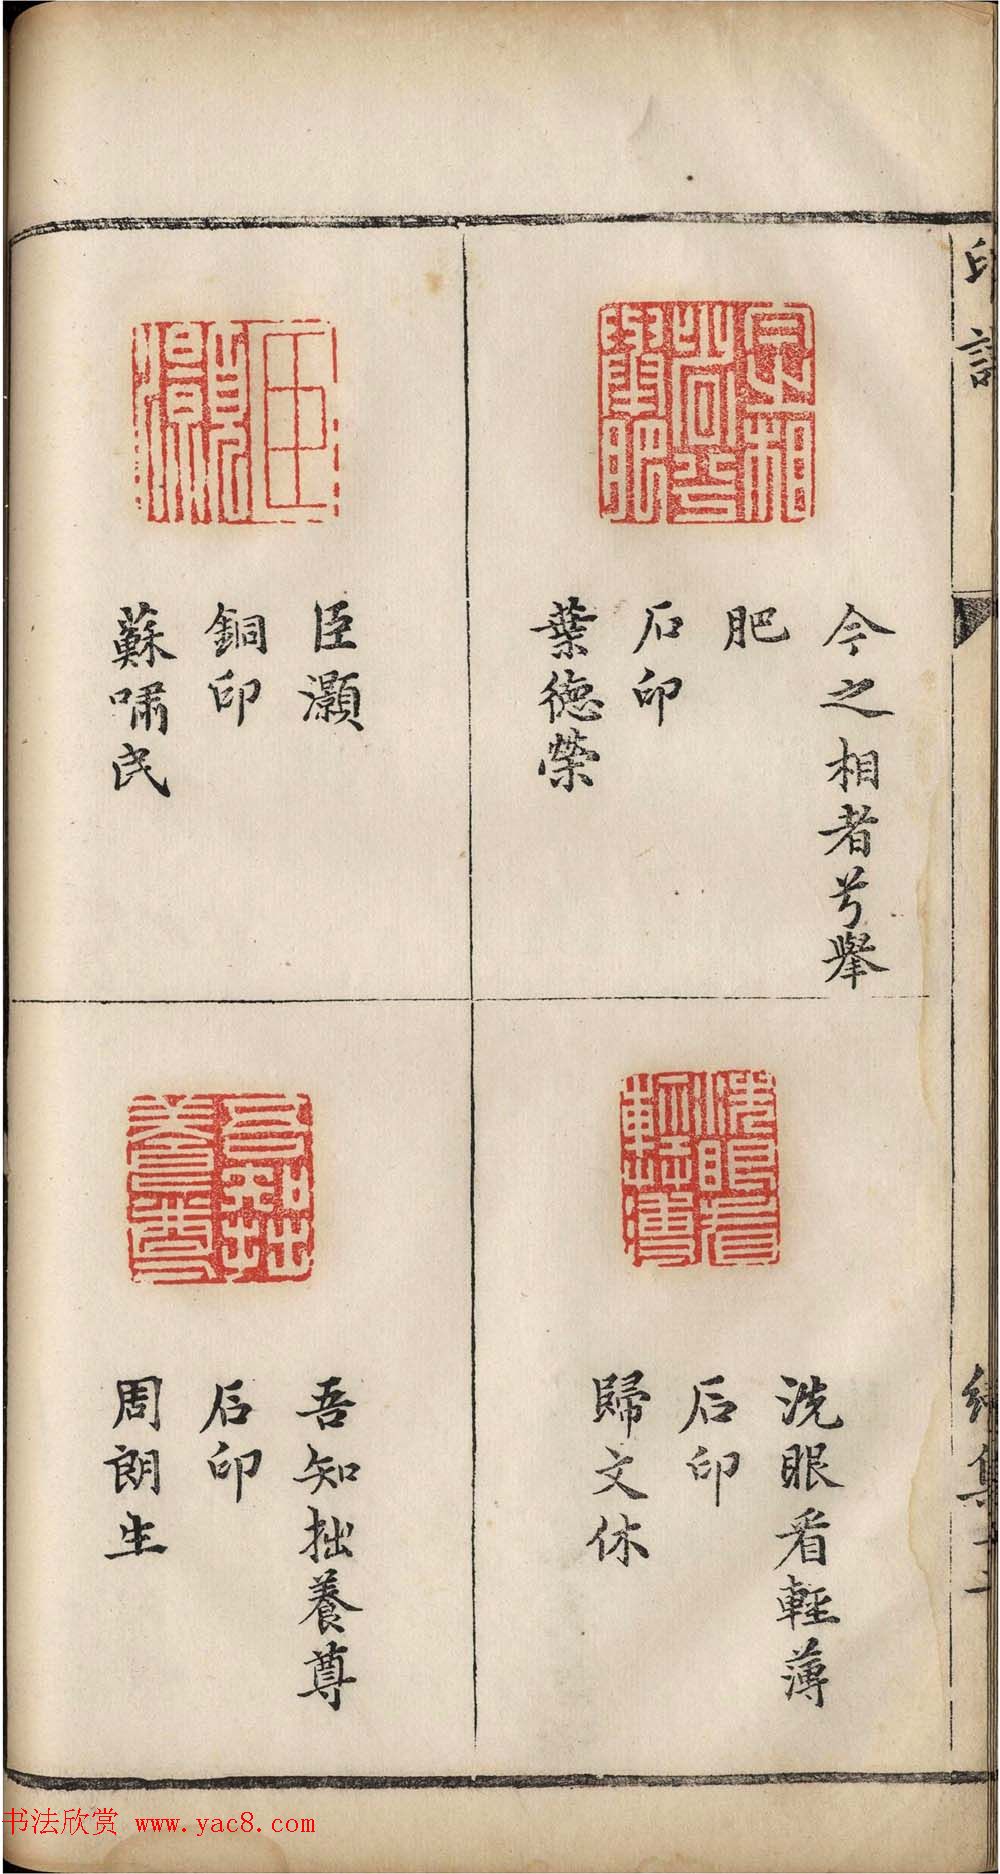 今之相者兮舉
肥
石印
葉德榮
臣灝
銅印
蘇嘯民
洗眼看輕薄
石印
歸文休
吾知拙養尊
石印
周朗生
书法欣赏 www.yac8.com